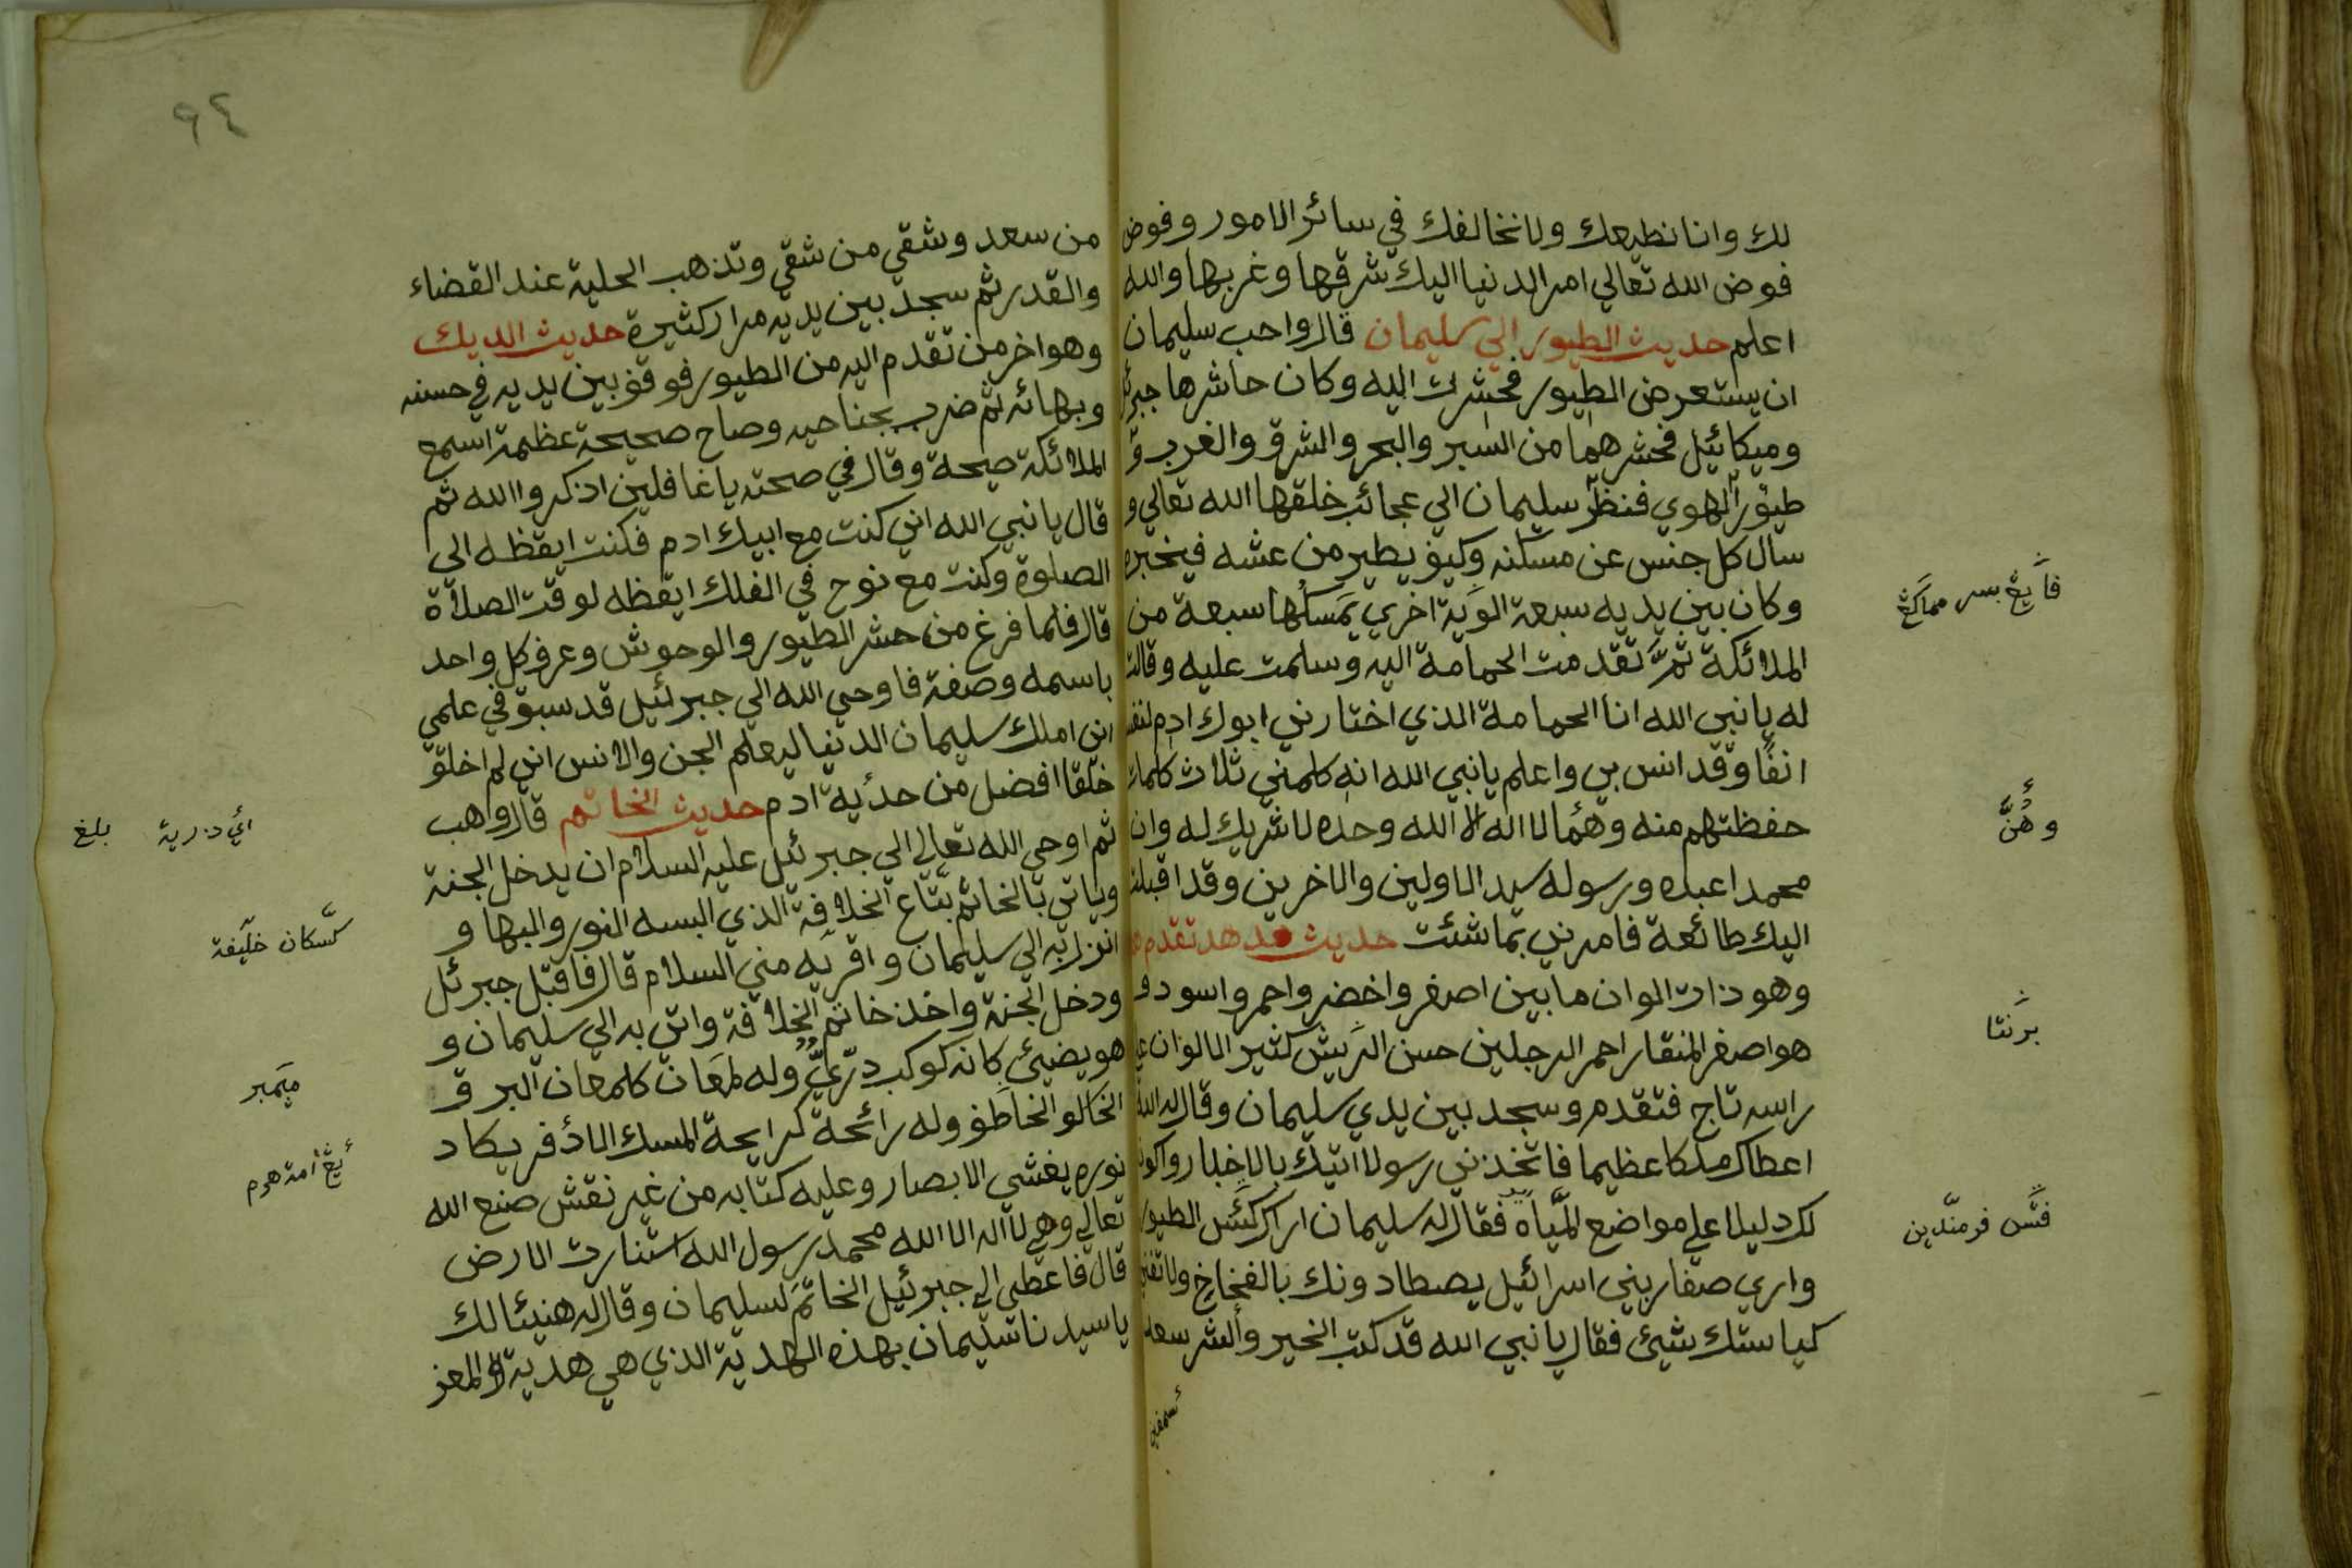 لك وانا نطيعك ولا نخالفك في سائر الامور وفوض
فوض الله تعالي امر الدنيا اليك شرقها وغربها والله
اعلم حديث الطيور الي سليمان قال واحب سليمان
ان يستعرض الطيور فحشرت اليه وكان حاشرها
وميكائيل فحشرهما من السبر والبحر والشرق والغرب و
طيور الهوي فنظر سليمان الي عجائب خلقها الله تعالي و
سال كل جنس عن مسكنه وكيف يطير من عشه فيخبره
وكان بين يديه سبعة الوية اخري يمسكها سبعة من
الملائكة ثم تقدمت الحمامة اليه وسلمت عليه وقالت
له يا نبي الله انا الحمامة الذي اختارني ابوك ادم
انفا وقد انس بي واعلم يا نبي الله انه كلمني ثلاث كلمات
حفظتهم منه وهما لا اله الا الله وحده لا شريك له وان
محمدا عبده ورسوله سيد الاولين والاخرين وقد اقبلت
اليك طائعة فامرني بما شئت حديث هدهد تقدم
وهو ذات الوان ما بين اصفر واخضر واحمر واسود و
هو اصفر المنقار احمر الرجلين حسن الريش كثير الالوان
راسه تاج فتقدم وسجد بين يدي سليمان وقال له الله
اعطاك ملكا عظيما فاتخذني رسولا اتيك بالاخبار واكون
لك دليلا علي مواضع المياه فقال له سليمان اراك كيس الطيور
واري صغار بني اسرائيل يصطادونك بالفخاخ ولا تغني
كياستك شيئ فقال يا نبي الله قد كتب الخير والشر سعد
فايغ بسر
وهن
برنتا
من سعد وشقي من شقي وتذهب الحلية عند القضاء
والقدر ثم سجد بين يديه مرار كثيرة حديث الديك
وهو اخر من تقدم اليه من الطيور فوقف بين يديه في حسنه
وبهائه ثم ضرب بجناحيه وصاح صحيحة عظيمة اسمع
الملائكة صيحة وقال في صحته يا غافلين اذكروا الله ثم
قال يا نبي الله اني كنت مع ابيك ادم فكنت ايقظه الي
الصلوة وكنت مع نوح في الفلك ايقظه لوقت الصلاة
قال فلما فرغ من حشر الطيور والوحوش وعرف كل واحد
باسمه وصفة فاوحي الله الي جبرئيل قد سبق في علمي
اني املك سليمان الدنيا ليعلم الجن والانس اني لم اخلق
خلقا افضل من ادم حديث الخاتم قال واهب
ثم اوحي الله تعالي الي جبرئيل عليه السلام ان يدخل الجنة
وياتي بالخاتم بتاع الخلافة الذي البسه النور والبها و
انزل به الي سليمان واقريه مني السلام قال فاقبل جبرئل
ودخل الجنة واخذ خاتم الخلافة واتي به الي سليمان و
هو يضيئ كانه كوكب دري وله لمعان كلمعان البرق
الخاطف وله رائحة كرايحة المسك الاذفر يكاد
نوره يغشي الابصار وعليه كتابه من غير نقش صنع الله
تعالي وهي لا اله الا الله محمد رسول الله استنارت الارض
قال فاعطي الي جبرئيل الخاتم لسليمان وقال له هنيئا لك
يا سيدنا سليمان بهذه الهدية الذي هي هدية المعز
٩٤
اي ذرية
بلغ
كسكان خليفة
ميمبر